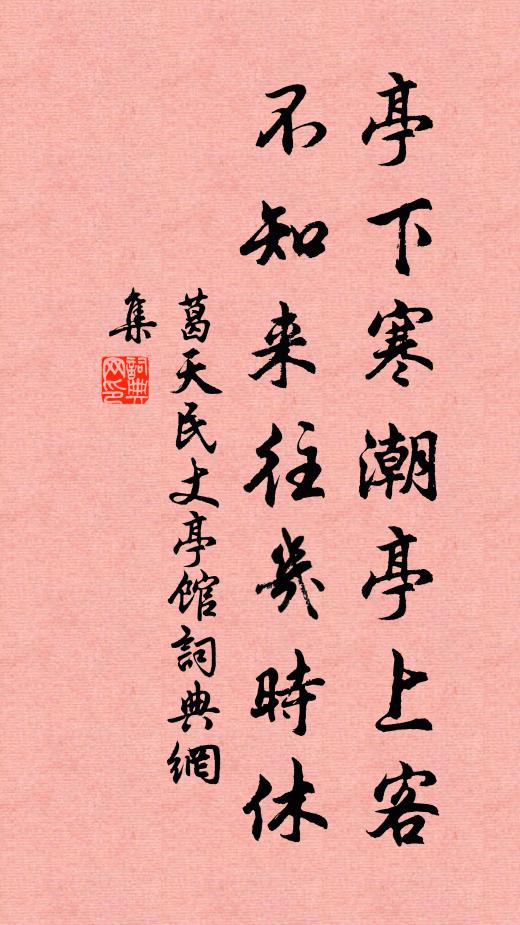 亭下寒潮亭上客
不知来往幾時休
葛天民丈亭館詞典網
集
詞典网印